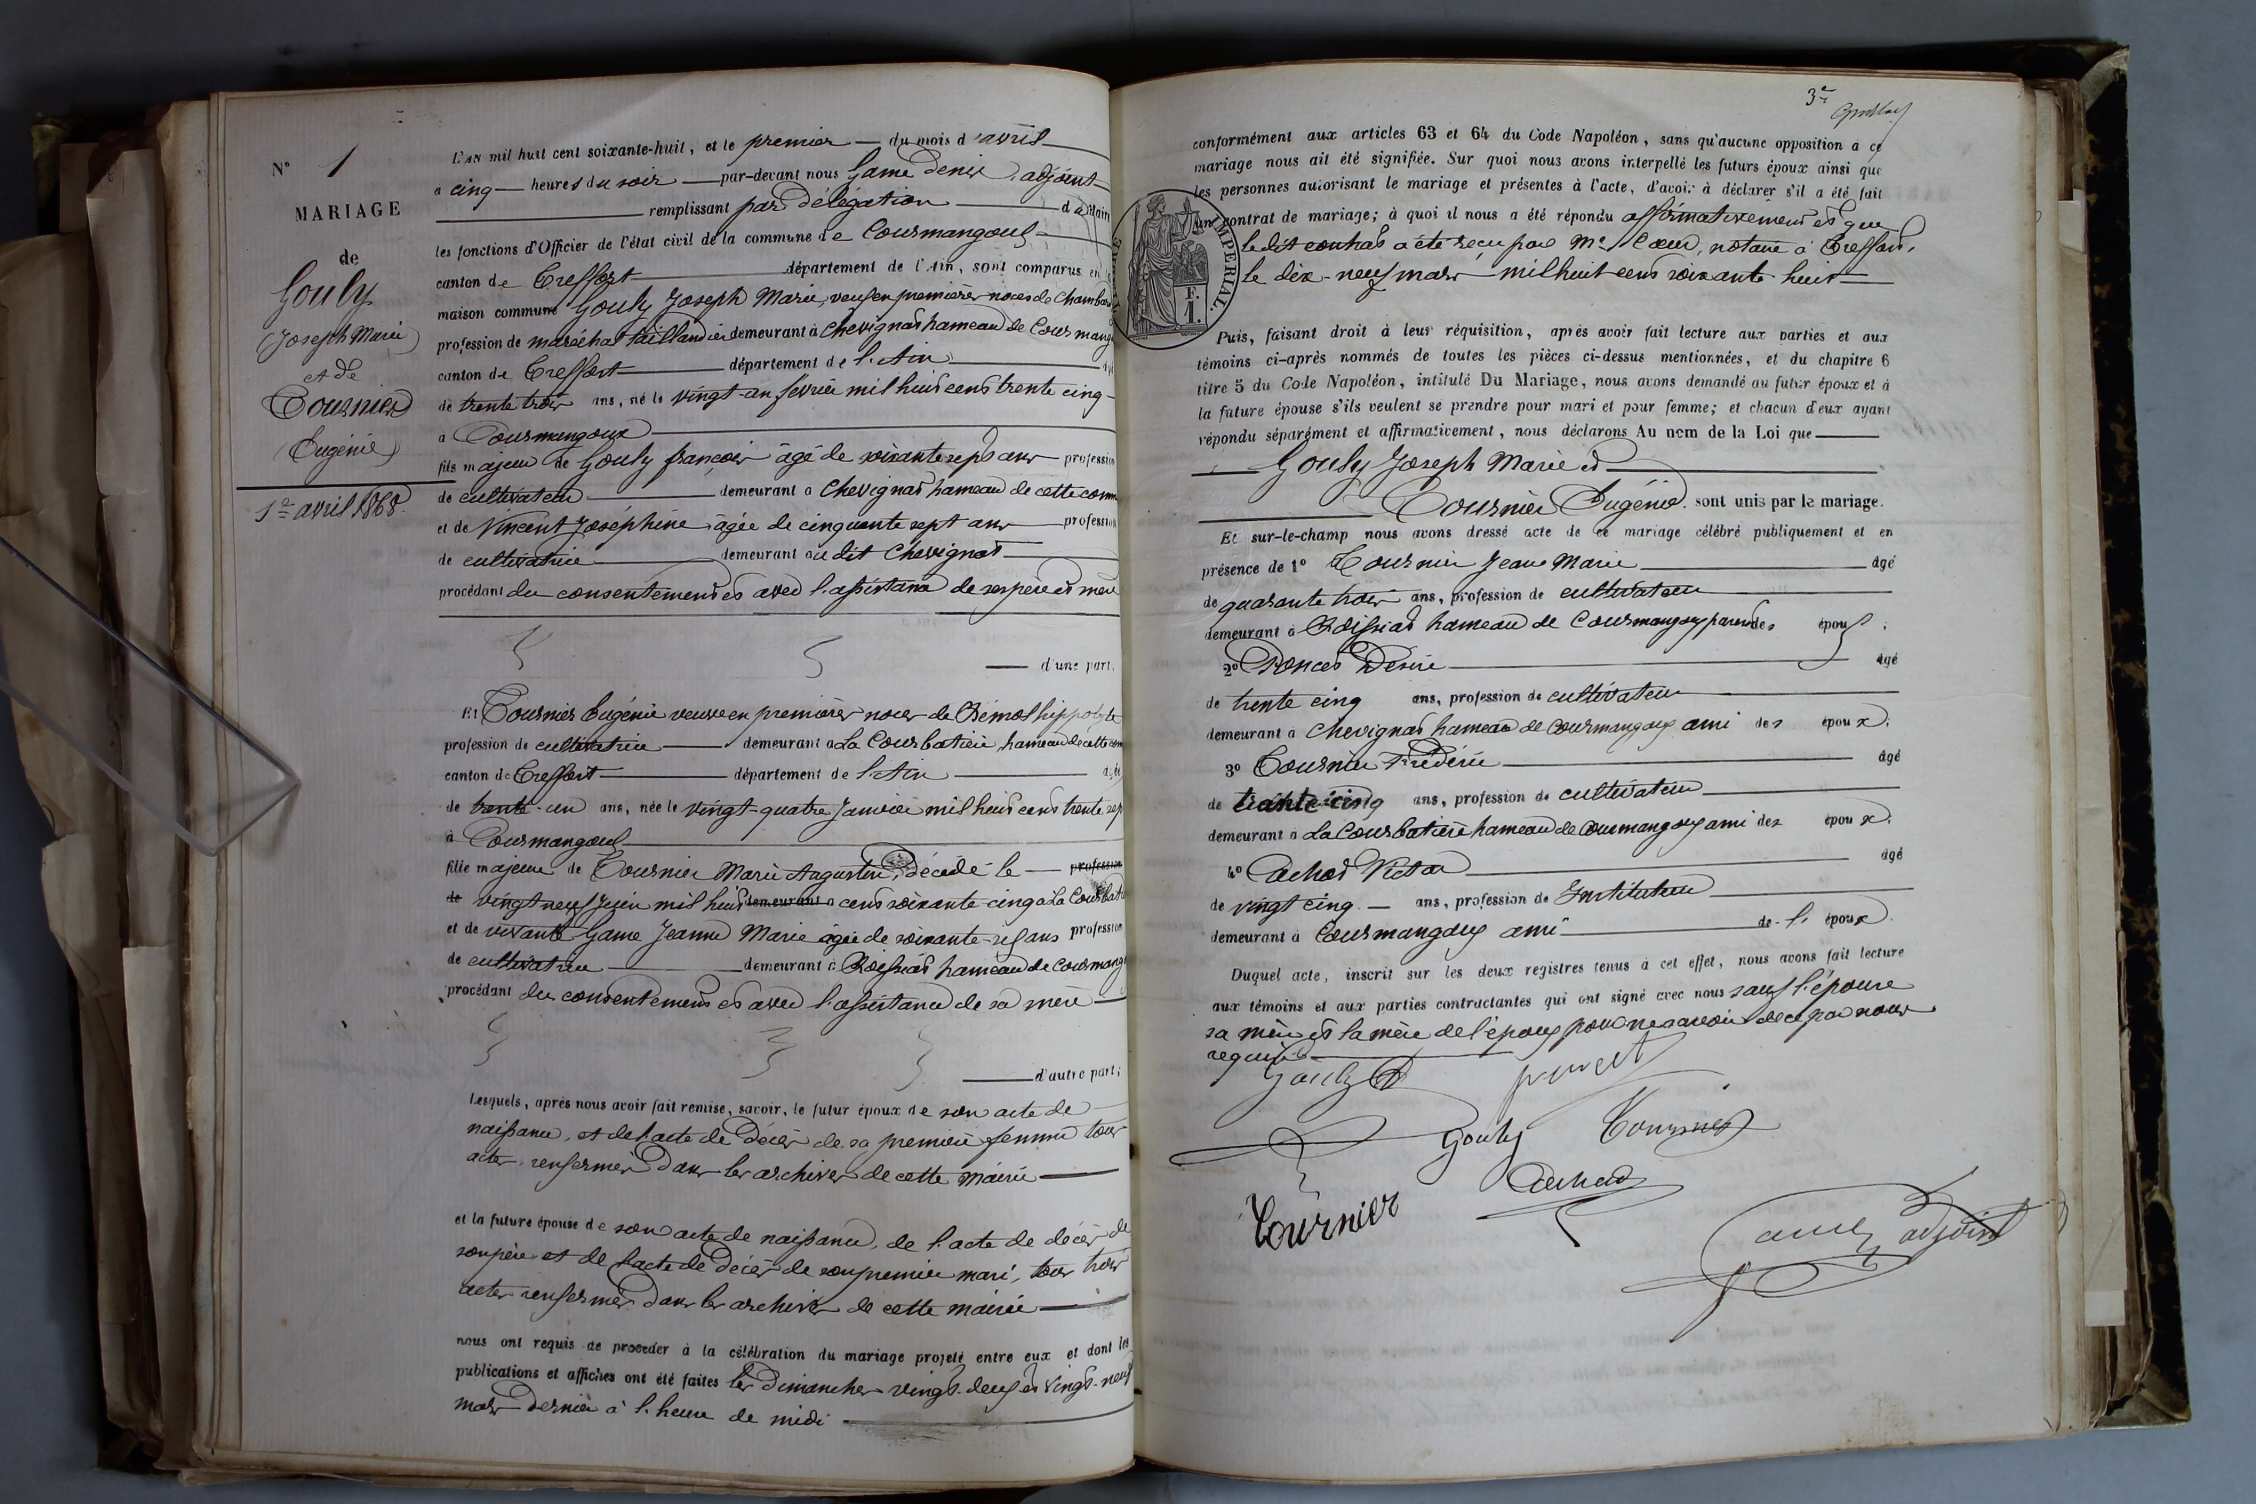 N° 1
MARIAGE
de
Gouly
(Joseph Marie)
et de
Tournier
(Eugénie)
1er avril 1868.
L'AN mil huit cent soixante-huit, et le premier du mois d'avril
à cinq heures du soir par-devant nous Game Denis, adjoint
remplissant par délégation
les fonctions d'Officier de l'état civil de la commune de Courmangoux
canton de Treffort département de l'Ain, sont comparus en
maison commune Gouly Joseph Marie, veuf en premières noces de
profession de maréchal taillandier demeurant à Chevignat hameau de
canton de Treffort département de l'Ain
de trente trois ans, né le vingt-un février mil huit cent trente cinq
à Courmangoux
fils majeur de Gouly françois âgé de soixante sept ans profession
de cultivateur demeurant à Chevignat hameau de cette
et de Vincent Joséphine âgée de cinquante sept ans profession
de cultivatrice demeurant au dit Chevignat
procédant du consentement et avec l'assistance de ses père et mère
d'une part.
Et Tournier Eugénie veuve en premières noces de hippolyte
profession de cultivatrice demeurant à La Courbatière, hameau de cette
canton de Treffort département de l'Ain
de trente-un ans, née le vingt-quatre Janvier mil huit cent trente sept
à Courmangoux
fille majeure de Tournier Marie Augustin, décédé le profession
de vingt neuf juin mil huit demeurant à cent soixante-cinq à La
et de vivante Game Jeanne Marie âgée de soixante-six ans profession
de cultivatrice demeurant à Roissiat hameau de
procédant du consentement et avec l'assistance de sa mère
d'autre part;
Lesquels, après nous avoir fait remise, savoir, le futur époux de son acte de
naissance, et de l'acte de Décès de sa première femme tous
actes renfermés dans les archives de cette mairie
et la future épouse de son acte de naissance, de l'acte de décès de
son père et de l'acte de Décès de son premier mari, tous trois
actes renfermés dans les archives de cette mairie
nous ont requis de procéder à la célébration du mariage projeté entre eux et dont les
publications et affiches ont été faites les Dimanches vingt-deux et vingt-neuf
mars Dernier à l'heure de midi
3e
conformément aux articles 63 et 64 du Code Napoléon, sans qu'aucune opposition à ce
mariage nous ait été signifiée. Sur quoi nous avons interpellé les futurs époux ainsi que
les personnes autorisant le mariage et présentes à l'acte, d'avoir à déclarer s'il a été fait
un contrat de mariage; à quoi il nous a été répondu affirmativement et que
le dit contrat a été reçu par Me Cœur, notaire à Treffort,
le dix-neuf mars mil huit cent soixante-huit
IMPERIAL.
F.
1.
Puis, faisant droit à leur réquisition, après avoir fait lecture aux parties et aux
témoins ci-après nommés de toutes les pièces ci-dessus mentionnées, et du chapitre 6
titre 5 du Code Napoléon, intitulé Du Mariage, nous avons demandé au futur époux et à
la future épouse s'ils veulent se prendre pour mari et pour femme; et chacun d'eux ayant
répondu séparément et affirmativement, nous déclarons Au nom de la Loi que
Gouly Joseph Marie et
Tournier Eugénie sont unis par le mariage.
Et sur-le-champ nous avons dressé acte de ce mariage célébré publiquement et en
présence de 1° Tournier Jean Marie âgé
de quarante trois ans, profession de cultivateur
demeurant à Roissiat hameau de Courmangoux parent des époux;
2° Désiré âgé
de trente cinq ans, profession de cultivateur
demeurant à Chevignat hameau de Courmangoux ami des époux;
3° Tournier Frédéric âgé
de trente cinq ans, profession de cultivateur
demeurant à La Courbatière hameau de Courmangoux ami des époux;
4° Achard Victor âgé
de vingt cinq ans, profession de Instituteur
demeurant à Courmangoux ami de l'époux.
Duquel acte, inscrit sur les deux registres tenus à cet effet, nous avons fait lecture
aux témoins et aux parties contractantes qui ont signé avec nous sauf l'épouse
sa mère et la mère de l'époux pour ne savoir de ce par nous
requis
Gouly
Gouly Tournier
Achard
Tournier
Game adjoint